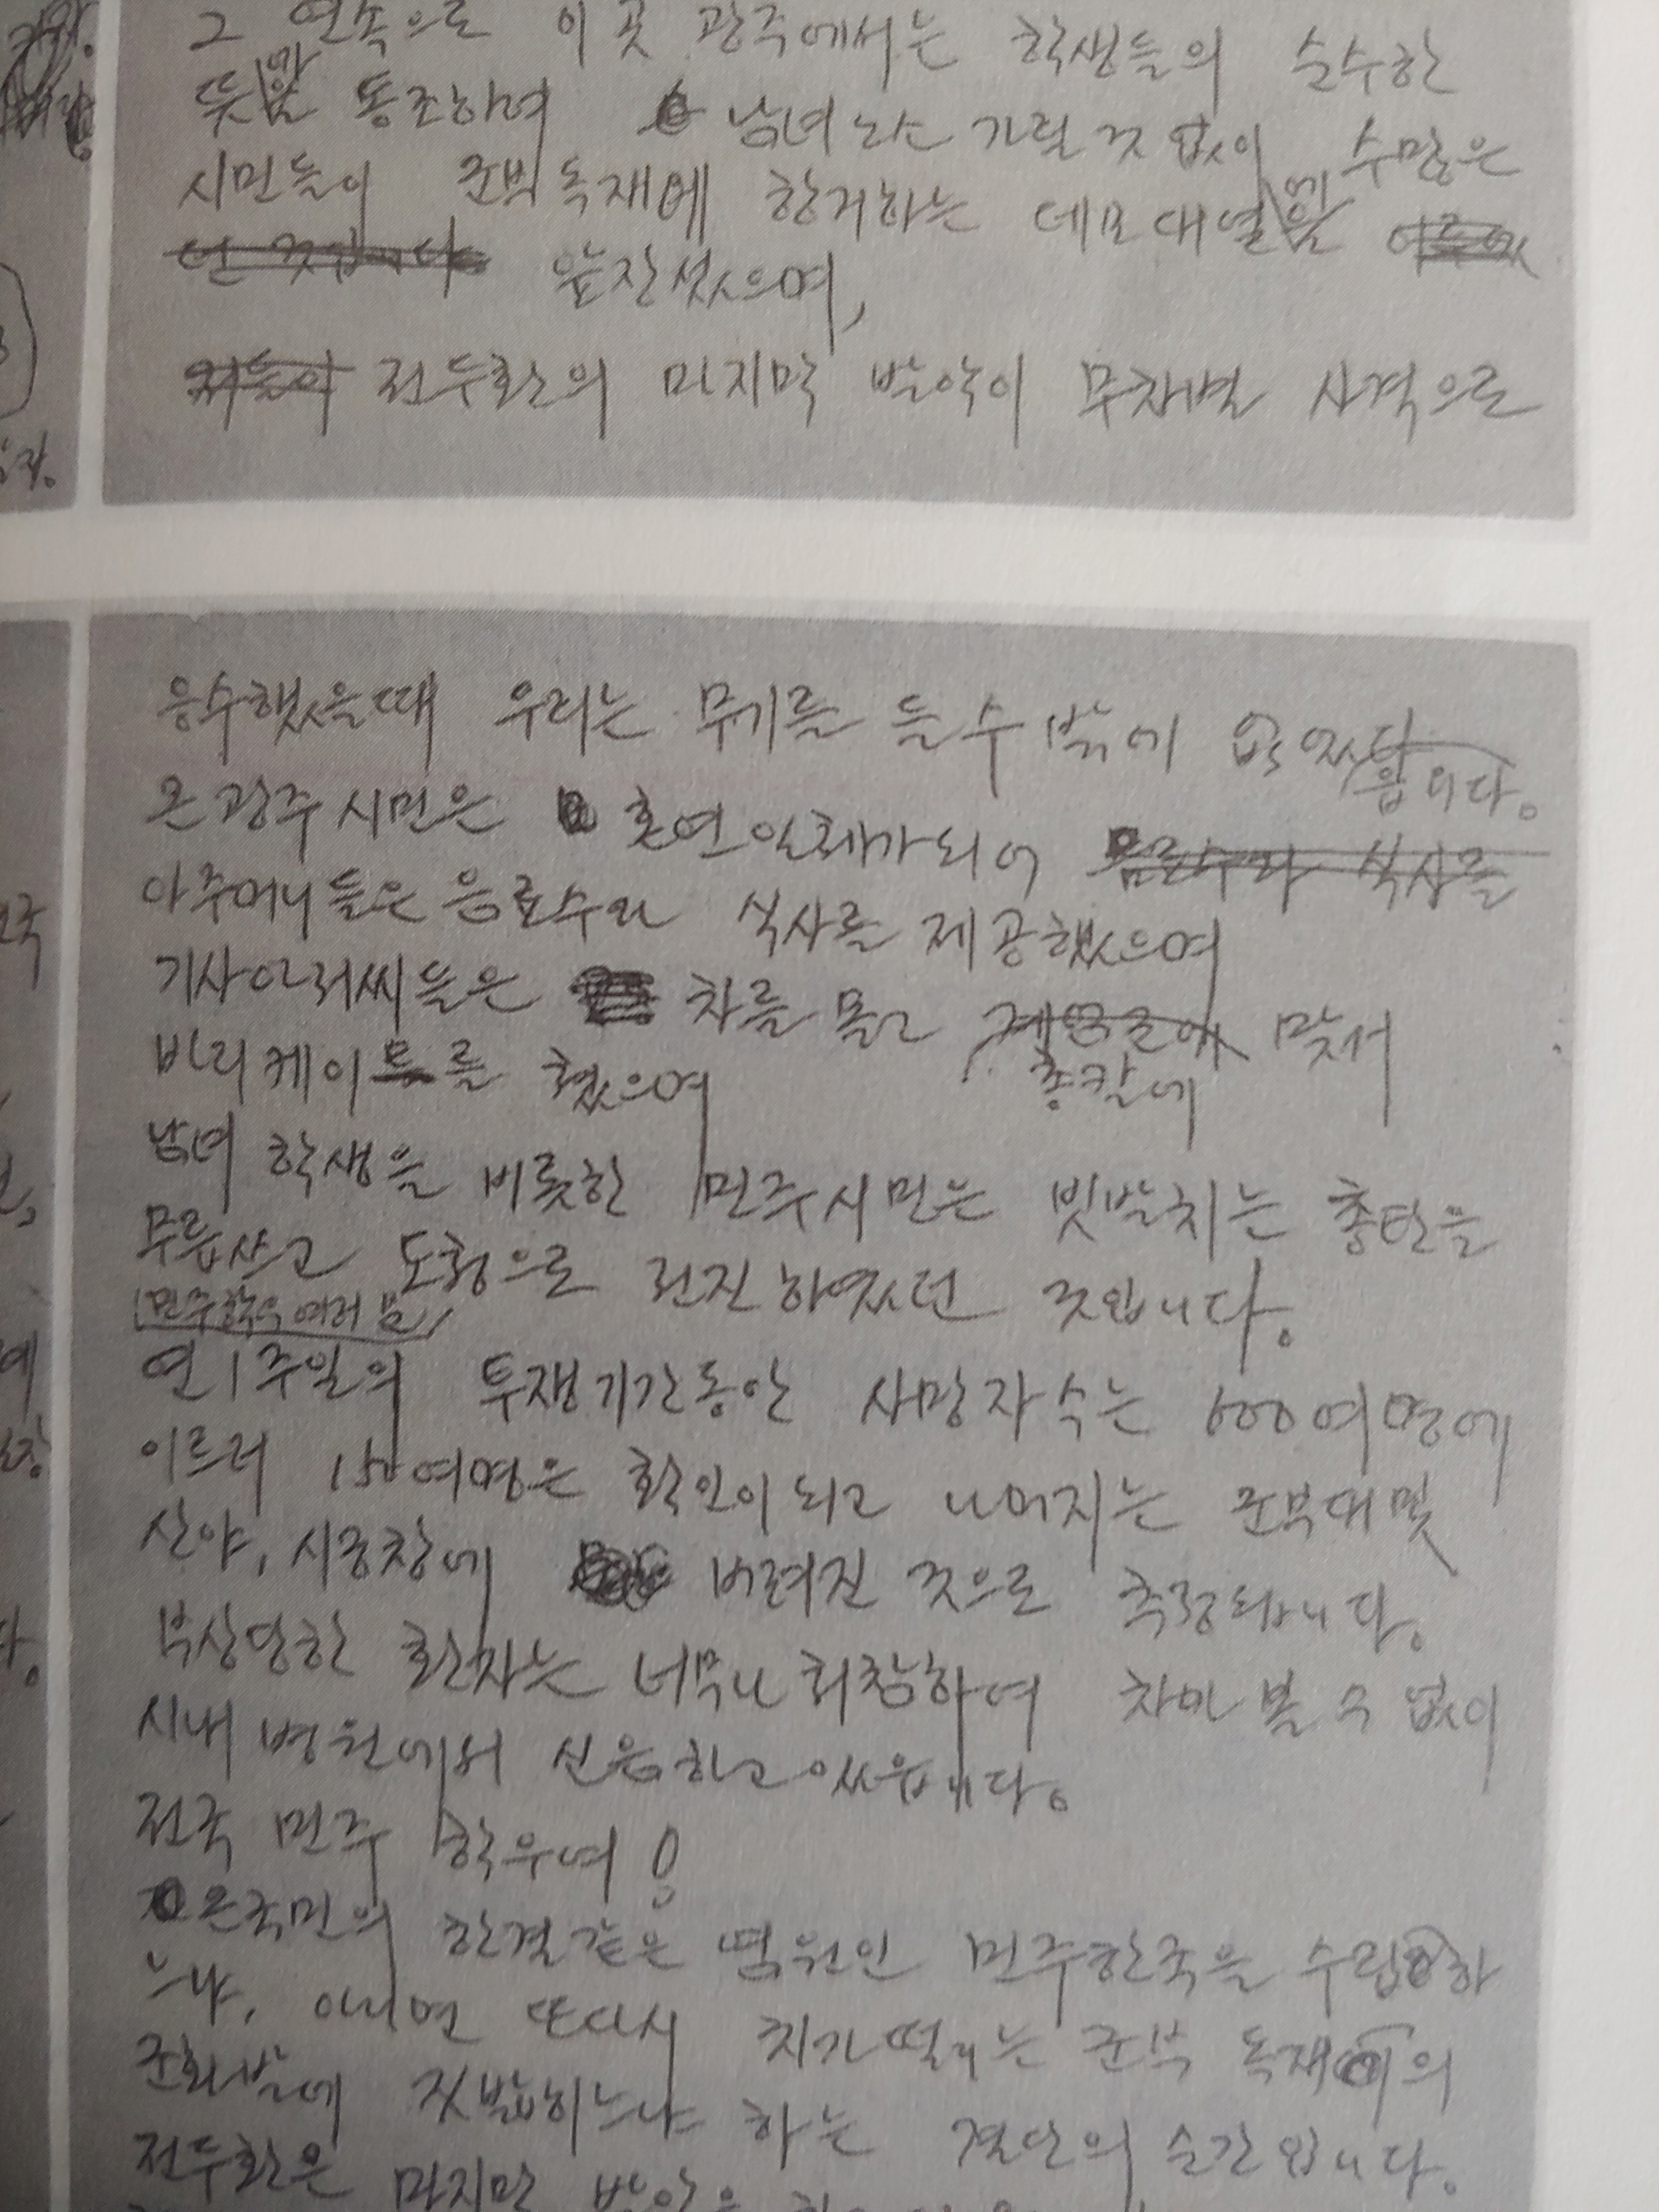 그 연속으로 이곳 광주에서는 학생들의 순수한
뜻과 동조하여 남녀노소 가릴 것 없이 수많은
시민들이 군부독재에 항거하는 데모대열에
앞장섰으며,
전두환의 마지막 발악이 무차별 사격으로
응수했을때 우리는 무기를 들 수 밖에 없었읍니다.
온 광주 시민은 혼연일체가 되어 음료수와 식사를
아주머니들은 음료수와 식사를 제공했으며
기사아저씨들은 차를 몰고 총칼에 맞서
바리케이트를 쳤으며
남녀 학생을 비롯한 민주시민은 빗발치는 총탄을
무릅쓰고 도청으로 전진하였던 것입니다.
민주학우 여러분
연 1주일의 투쟁기간동안 사망자 수는 600여명에
이르러 150여명은 확인이 되고 나머지는 군부대 및
산야, 시궁창에 버려진 것으로 추정됩니다.
부상당한 환자는 너무나 처참하여 차마 볼 수 없이
시내 병원에서 신음하고 있읍니다.
전국 민주 학우여!
온국민의 한결같은 염원인 민주한국을 수립하
느냐, 아니면 또다시 치가 떨리는 군부 독재의
군화발에 짓밟히느냐 하는 결단의 순간입니다.
전두환은 마지막 발악을